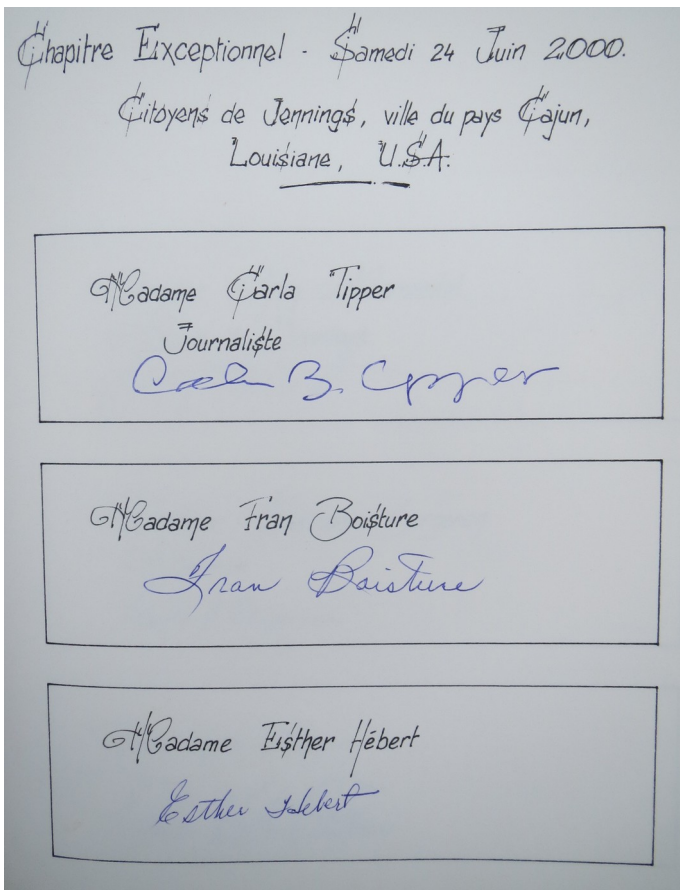 Chapitre Exceptionnel - Samedi 24 Juin 2000.
Citoyens de Jennings, ville du pays Cajun,
Louisiane, U.S.A.
Madame Carla Tipper
Journaliste
Madame Fran Boisture
Fran Boisture
Madame Esther Hébert
Esther Hebert